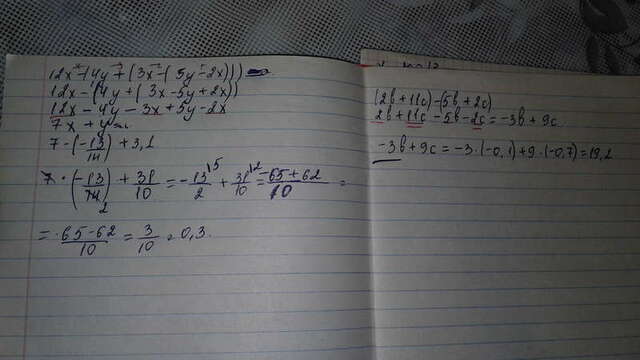 12x-(4y+(3x-(5y-2x)))
12x-(4y+(3x-5y+2x))
12x-4y-3x+5y-2x
7x+y
7·(-13/14)+3,1
7·(-13/14)+31/10=-13/2+31/10=-65+62/10=
=-65-62/10=3/10=0,3.
(2b+11c)-(5b+2c)
2b+11c-5b-2c=-3b+9c
-3b+9c=-3·(-0,1)+9·(-0,7)=19,2